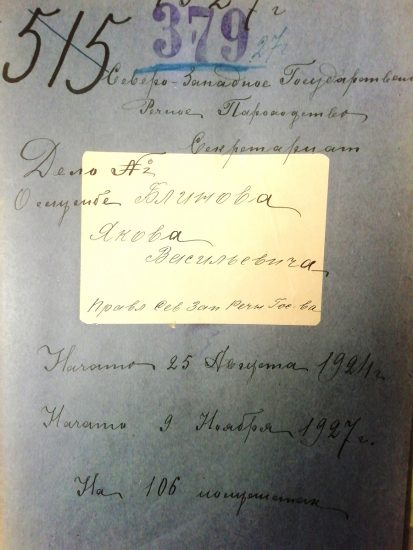 515
379
27
Северо-Западное Государствен
Речное Пароходство
Секретариат
Дело №
О службе Блинова
Якова
Васильевича
Правл Сев Зап Речн Гос-ва
Начато 25 Августа 1924 г.
Начато 9 Ноября 1927 г.
На 106